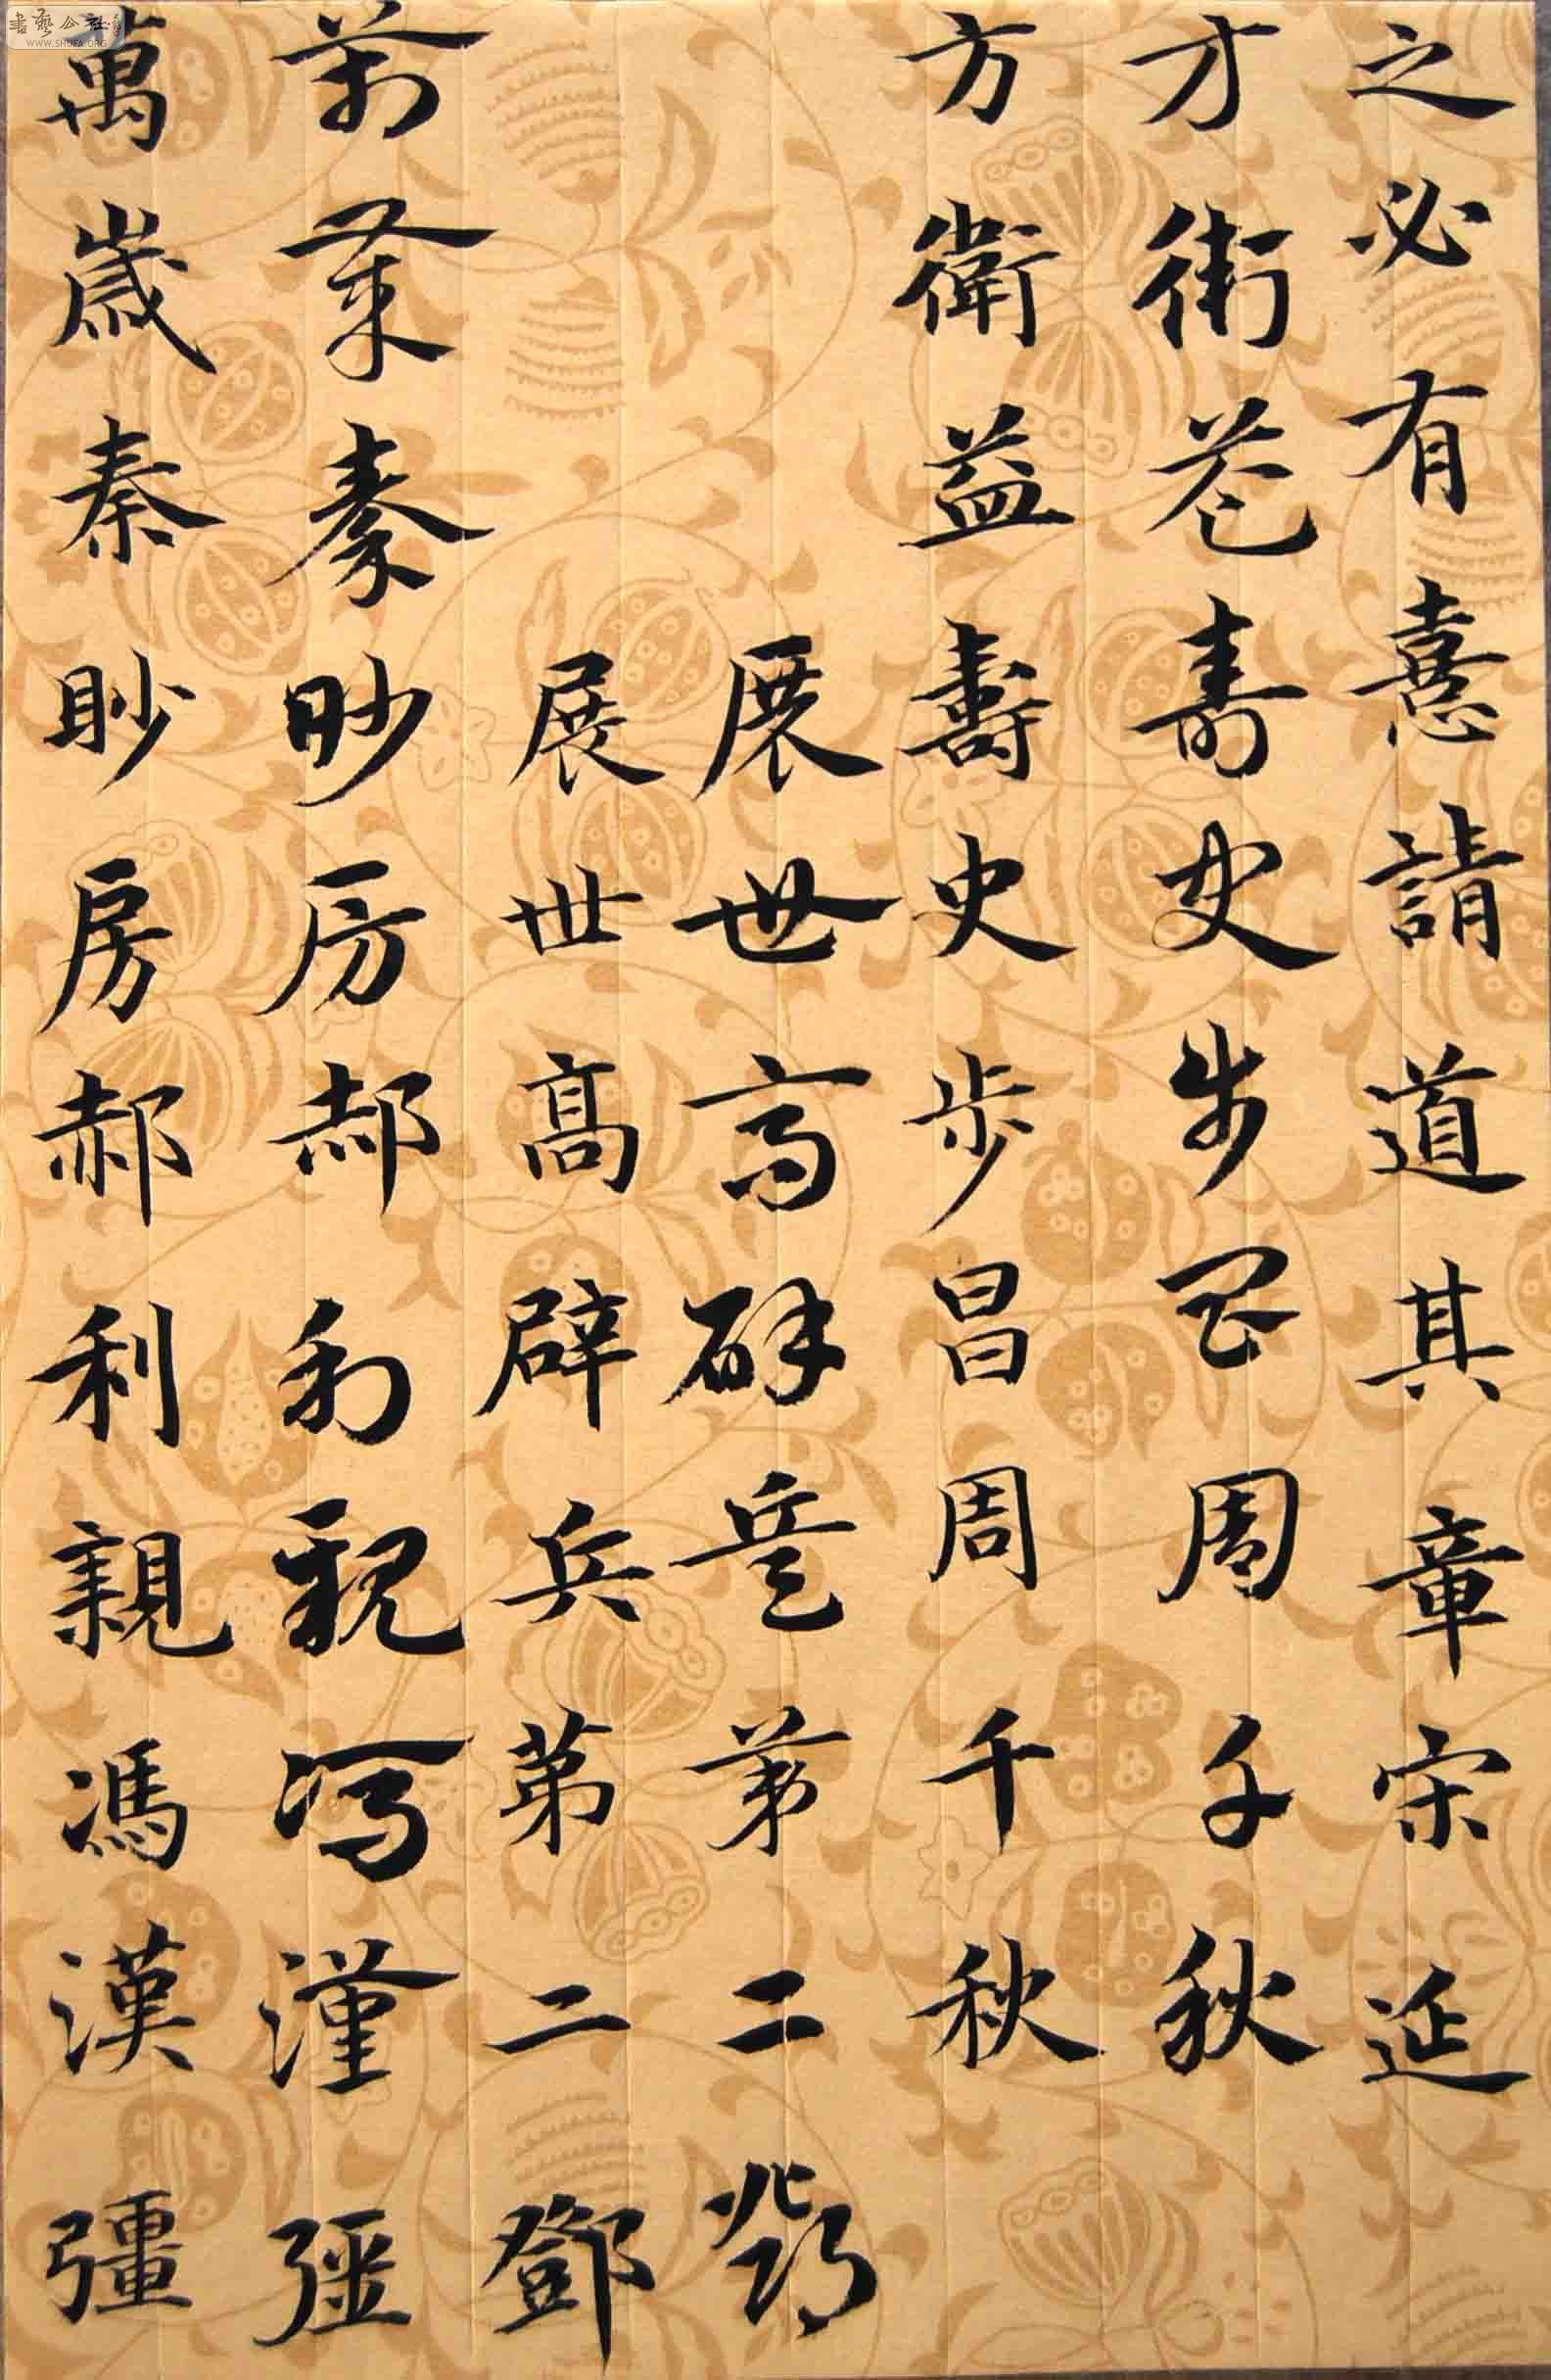 之必有憙請道其章宋延
方衛益壽史步昌周千秋
方衛益壽史步昌周千秋
展世高辟兵第二鄧
展世高辟兵第二鄧
萬歲秦眇房郝利親馮漢彊
萬歲秦眇房郝利親馮漢彊
書藝公社
WWW.SHUFA.ORG